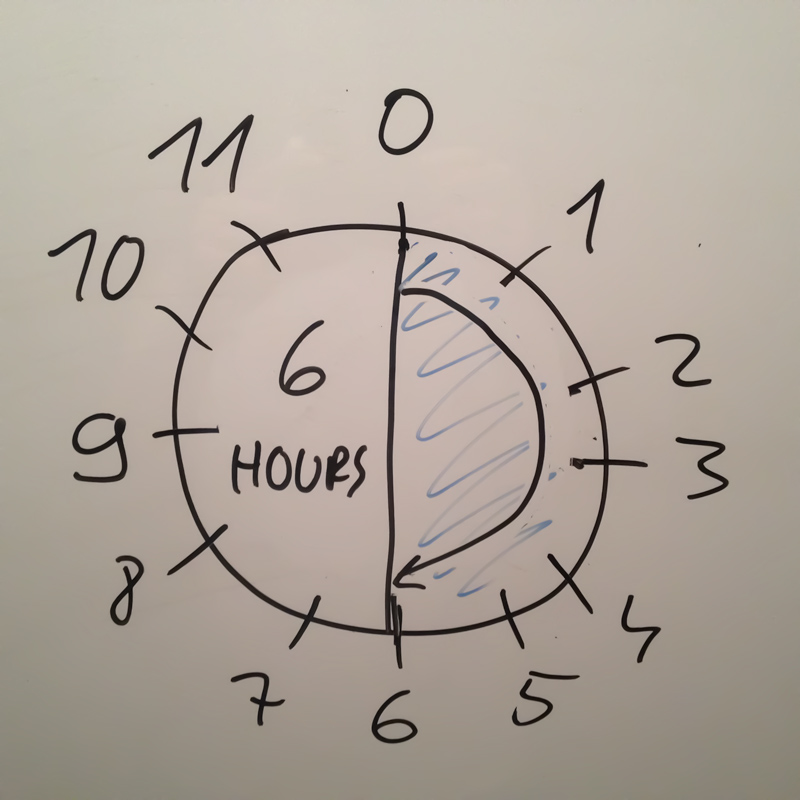 0
1
2
3
4
5
6
7
8
9
10
11
6
HOURS